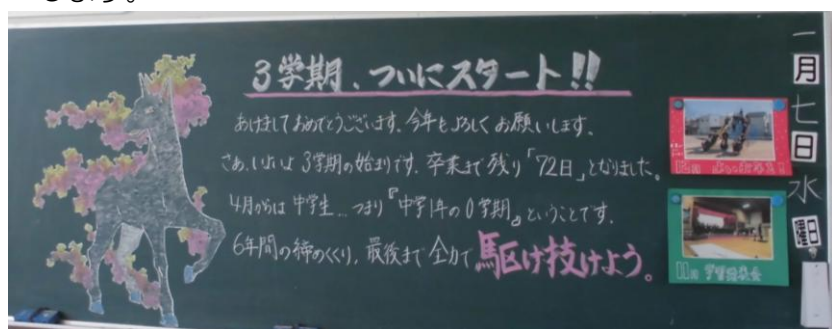 します。
3学期、ついにスタート!!
あけましておめでとうございます。今年もよろしくお願いします。
さあ、いよいよ3学期の始まりです。卒業まで残り「72日」となりました。
4月からは中学生…つまり『中学1年の0学期』ということです。
6年間の締めくくり、最後まで全力で駆け抜けよう。
一月七日水曜日
11月 学習発表会